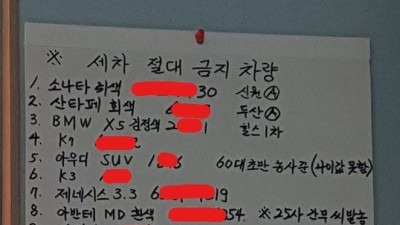 ※ 세차 절대 금지 차량
1. 소나타 흰색 30 신원Ⓐ
2. 산타페 회색 6 두산Ⓐ
3. BMW X5 검정색 2 1 힐스 1차
4. K9 2
5. 아우디 SUV 1 6 60대초반 농사꾼(나이값 못함)
6. K3
7. 제네시스 3.3 6 19
8. 아반테 MD 흰색 54 ※25사 간부 씨발놈